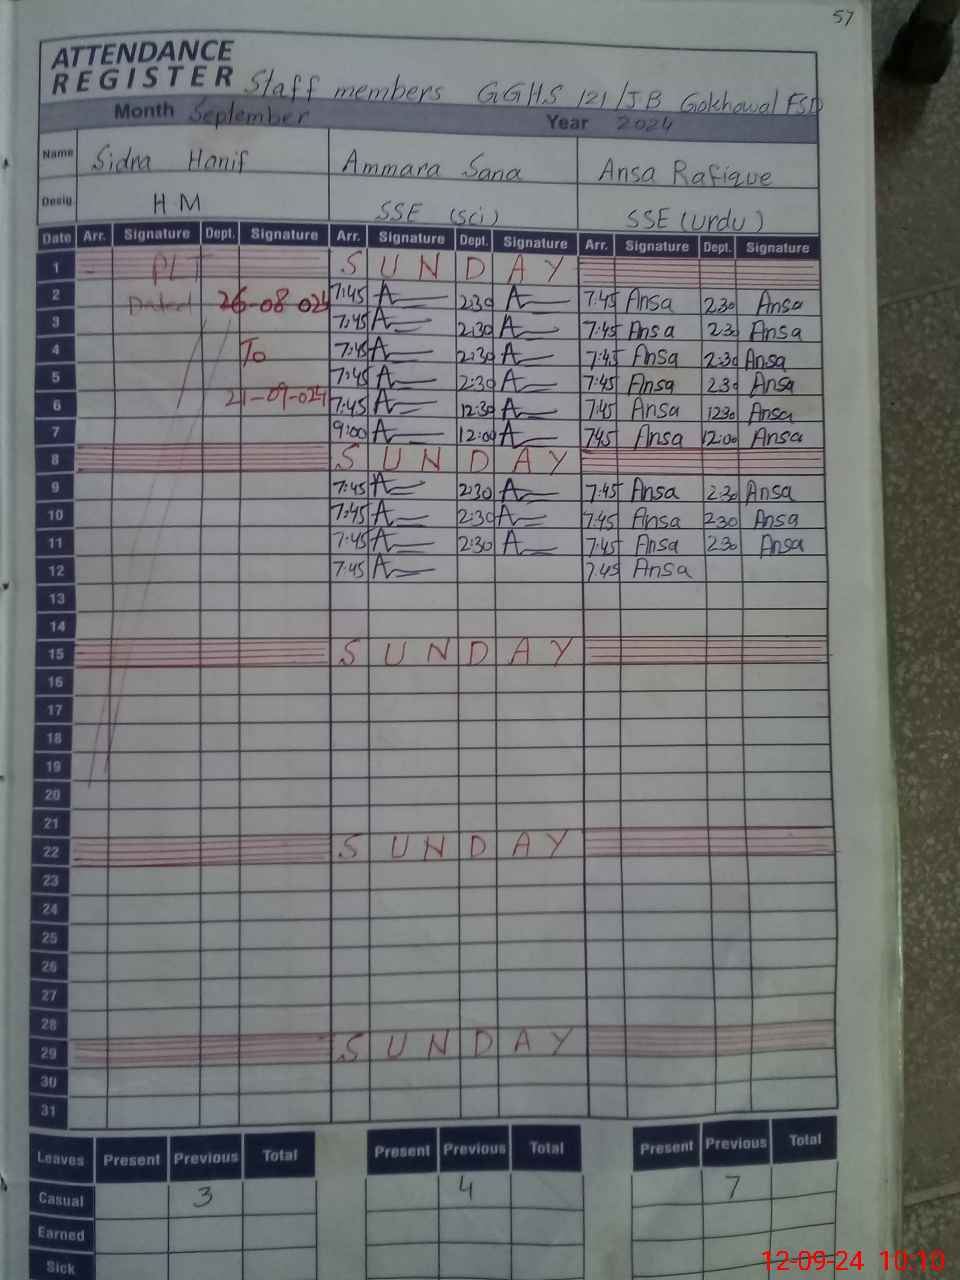 57
ATTENDANCE
REGISTER Staff members GGHS 121/JB Gokhowal FSD
Month September Year 2024
Name Sidra Hanif Ammara Sana Ansa Rafique
Desig. HM SSE (Sci) SSE (Urdu)
Date Arr. Signature Dept. Signature Arr. Signature Dept. Signature Arr. Signature Dept. Signature
1 PLT SUNDAY
2 Dated 26-08-024 7:45 A 2:30 A 7:45 Ansa 2:30 Ansa
3 7:45 A 2:30 A 7:45 Ansa 2:30 Ansa
4 To 7:45 A 2:30 A 7:45 Ansa 2:30 Ansa
5 7:45 A 2:30 A 7:45 Ansa 2:30 Ansa
6 21-09-024 7:45 A 12:30 A 7:45 Ansa 1230 Ansa
7 9:00 A 12:00 A 745 Ansa 12:00 Ansa
8 SUNDAY
9 7:45 A 2:30 A 7:45 Ansa 2:30 Ansa
10 7:45 A 2:30 A 7:45 Ansa 230 Ansa
11 7:45 A 2:30 A 7:45 Ansa 230 Ansa
12 7:45 A 7:45 Ansa
13
14
15 SUNDAY
16
17
18
19
20
21
22 SUNDAY
23
24
25
26
27
28
29 SUNDAY
30
31
Leaves Present Previous Total Present Previous Total Present Previous Total
Casual 3 4 7
Earned
Sick
12-09-24 10:10